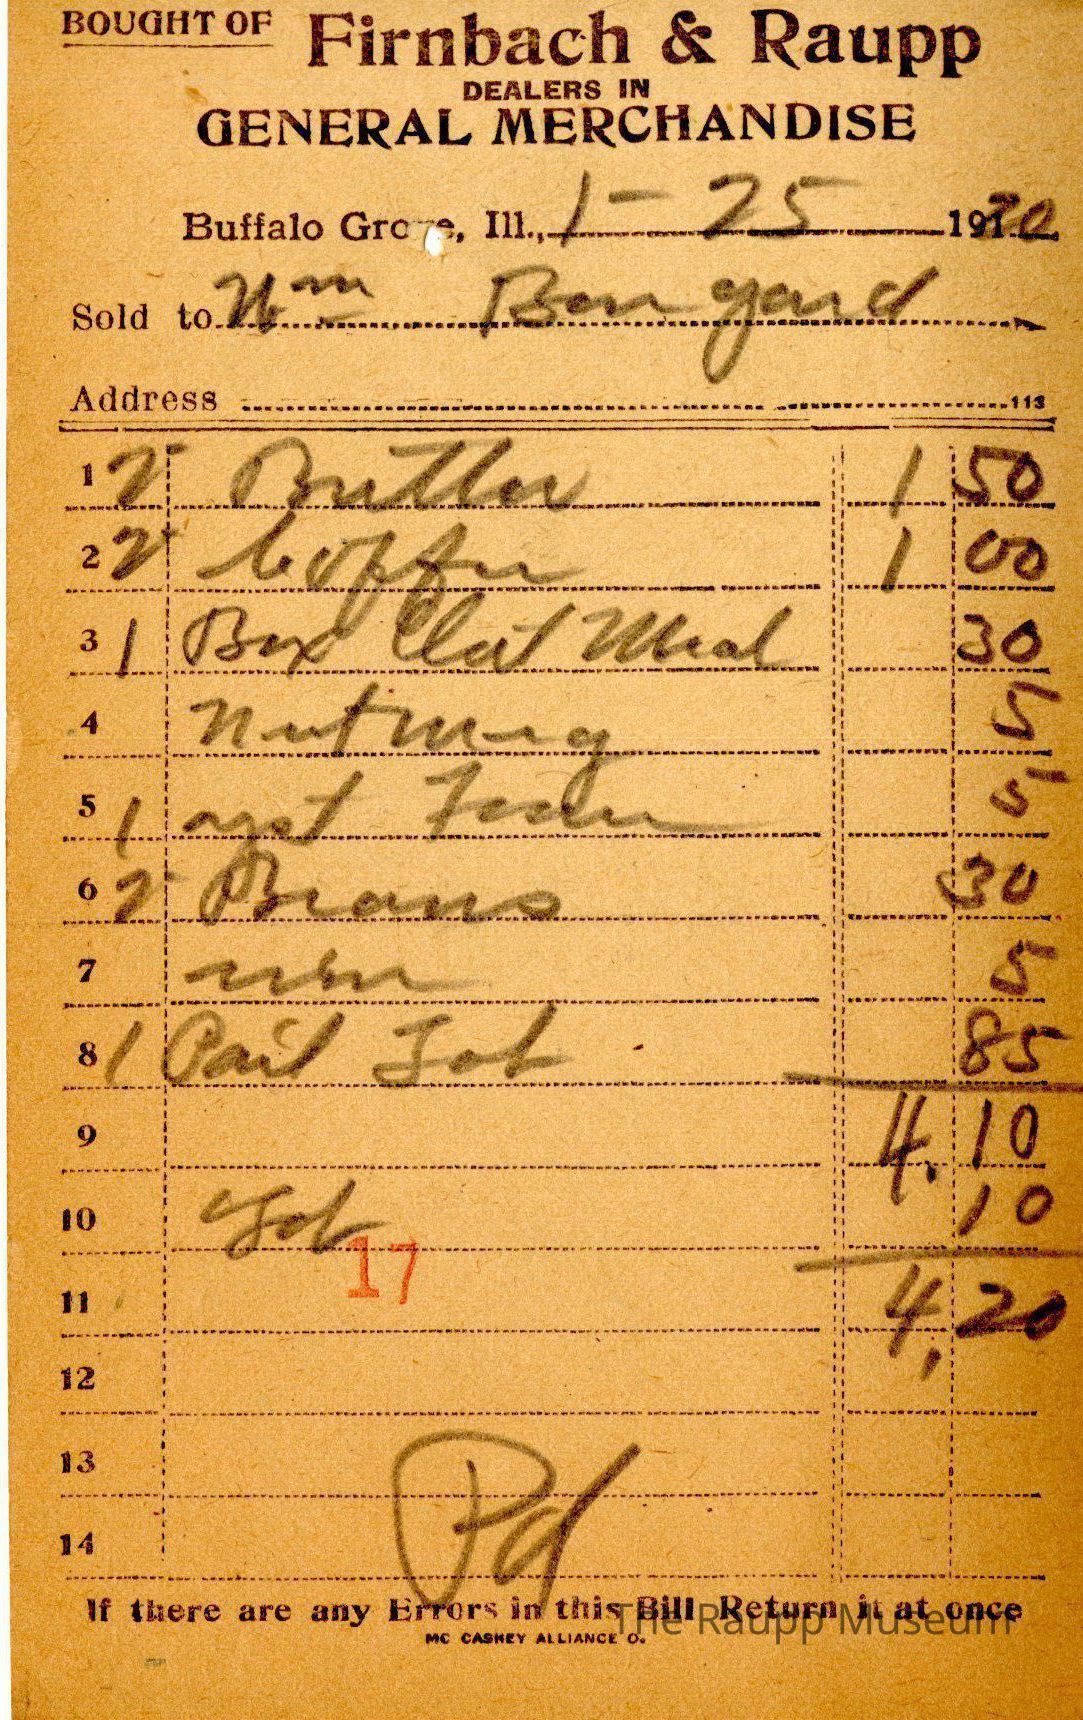 BOUGHT OF Firnbach & Raupp
DEALERS IN
GENERAL MERCHANDISE
Buffalo Grove, Ill., 1-25 1920
Sold to Wm Bongard
Address 113
1 2 Butter 1 50
2 2 Coffee 1 00
3 1 Box Oat Meal 30
4 Nutmeg 5
5 1 yst 5
6 2 Beans 30
7 5
8 1 Pail 85
9 4.10
10 10
17
11 4.20
12
13
14
Pd
If there are any Errors in this Bill Return it at once
MC CASKEY ALLIANCE O.
The Raupp Museum